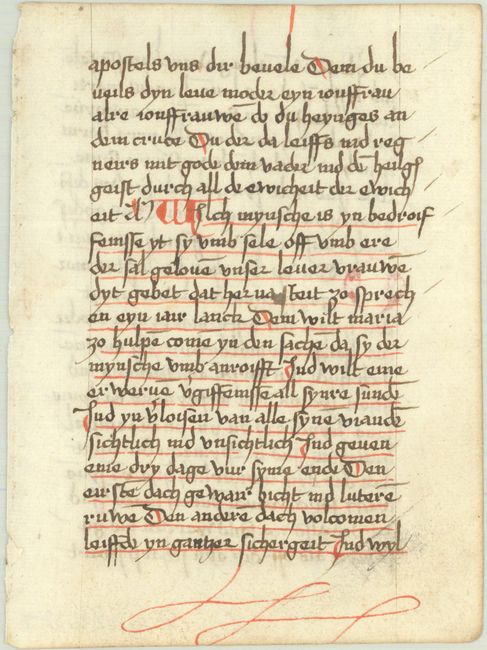 apostels vns dir beuele Dem du be
ueils dyn leue moder eyn iouffrau
alre iouffrauwē do du heynges an
dem cruce Du der da leiffs ind reg
neirs mit gode dem vader ind dē heilgē
geist durch all de ewicheit der ewich
eit Wilch mynsche is yn bedroif
fenisse yt sy vmb sele off vmb ere
der sal gelouē vnser leuer vrauwē
dyt gebet dat her na steit zo sprech
en eyn iair lanck Dem wilt maria
zo hulpe come yn den sachē da sy der
mynsche vmb anroifft Ind wilt eme
erweruē v̄giffenisse all synre sundē
Ind yn v̄loisen van alle syne viandē
sichtlich ind vnsichtlich Ind geuen
eme dry dage vur syme ende Den
eirste dach gewair bicht ind luterē
ruwe Den andere dach volcomen
leiffde yn gantzer sichergeit Ind wyl